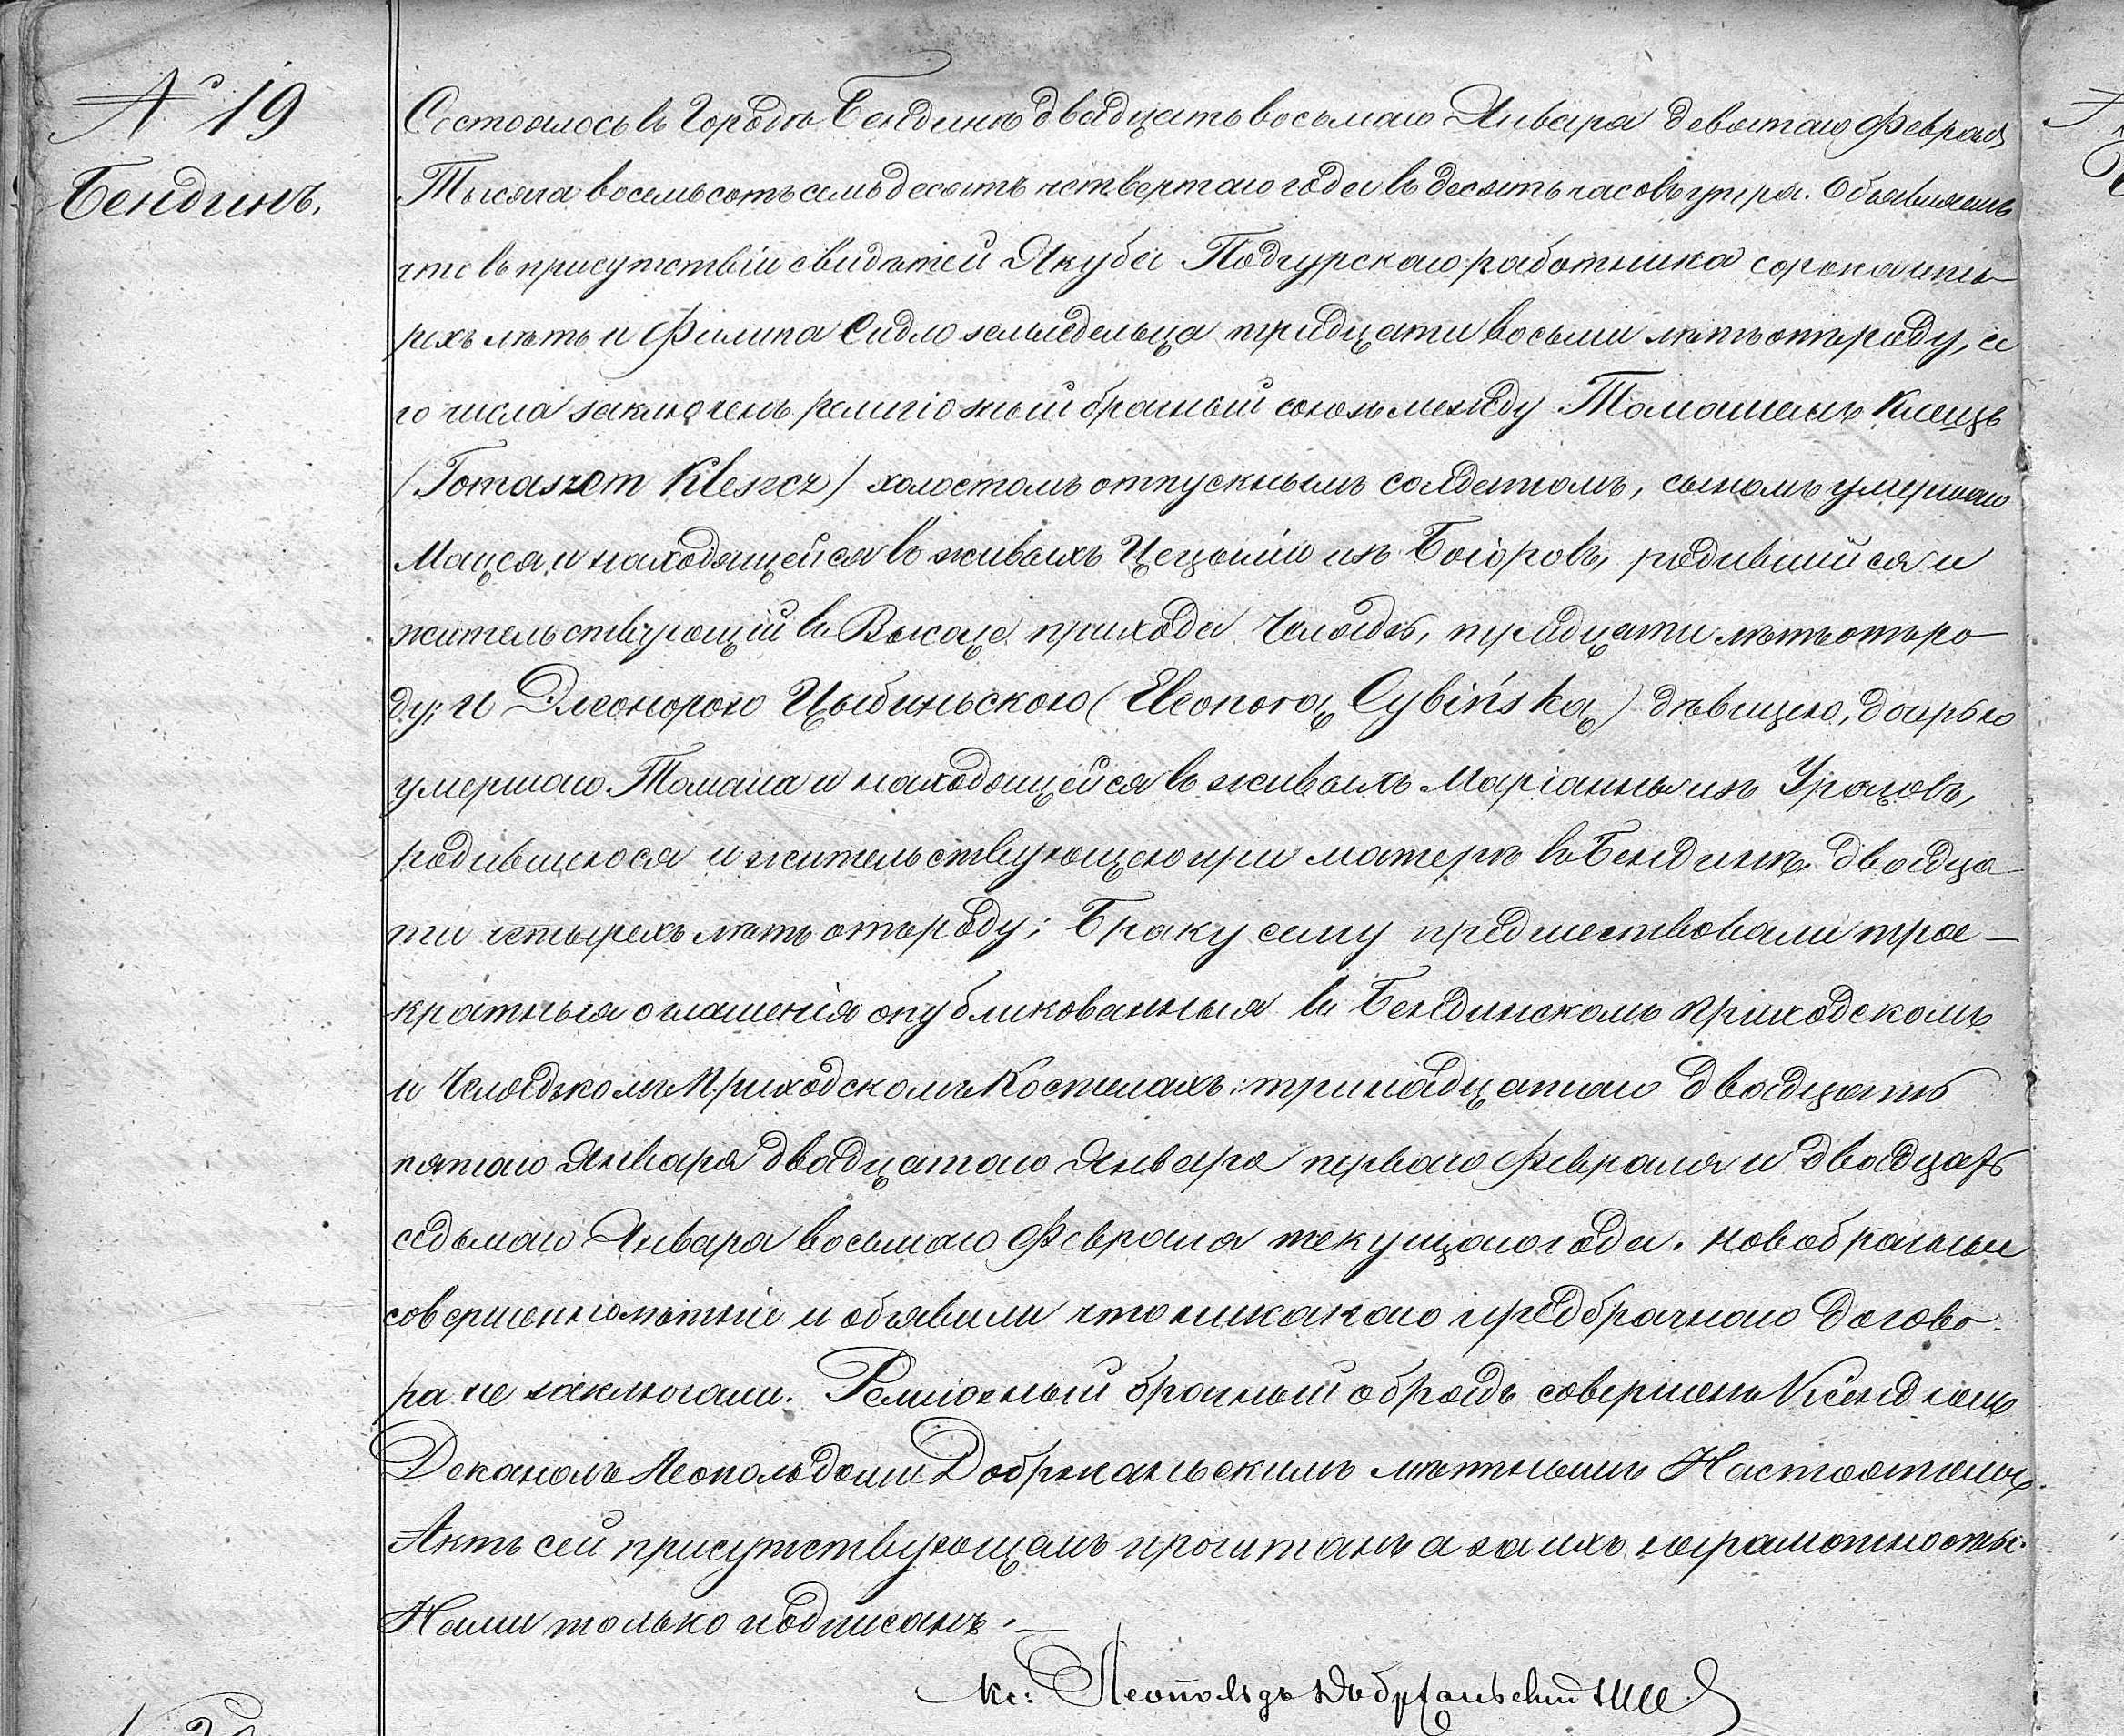 № 19
Бендинъ.
Состоялось въ Городѣ Бендинѣ двадцать восьмаго Января девятаго Февраля
Тысяча восемьсотъ семьдесятъ четвертаго года въ десять часовъ утра. Объявляемъ
что въ присутствіи свидѣтелей Якуба Подгурскаго работника сорока четы-
рехъ лѣтъ и Филипа Сидло земледельца тридцати восьми лѣтъ отъ роду, се
го числа заключенъ религіозный брачный союзъ между Томашемъ Клещъ
(Tomaszem Kleszcz) холостомъ отпускнымъ солдатомъ, сыномъ умершаго
Мацея и находящейся въ живыхъ Цецыліи изъ Боіоровъ, родившийся и
жительствующій въ прихода Челядзь, тридцати лѣтъ отъ ро-
ду; и Элеонорою Цыбиньскою (Eleonorą Cybińską) дѣвицею, дочерью
умершаго Томаша и находящейся въ живыхъ Маріанны изъ
родившеюся и жительствующею при матерѣ въ Бендинѣ двадца-
ти четырехъ лѣтъ отъ роду; Браку сему предшествовали трое-
кратныя оглашенія опубликованныя въ Бендинскомъ приходскомъ
и Челядзкомъ Приходскомъ Костелахъ: тринадцатаго двадцать
пятаго Января двадцатаго Января перваго Февраля и двадцать
седьмаго Января восьмаго Февраля текущаго года. Новобрачныи
совершеннолѣтніе и объявили что никакаго предбрачнаго догово-
ра не заключали. Религіозный брачный обрядъ совершенъ Ксендзомъ
Деканомъ Леопольдомъ Добржаньскимъ мѣстнымъ Настоятелемъ.
Актъ сей присутствующамъ прочитанъ а за ихъ неграмотностью
Нами только подписанъ. —
Кс: Леопольдъ Добржаньскій